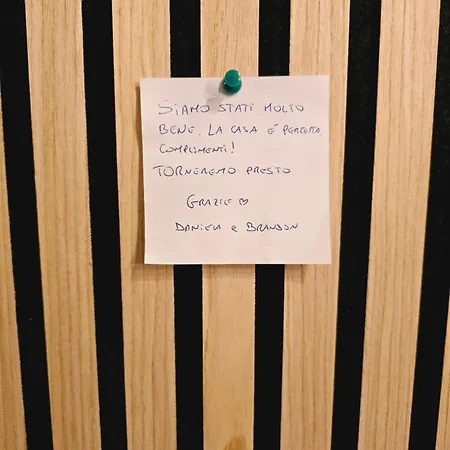 SIAMO STATI MOLTO
BENE. LA CASA É PERFETTA.
COMPLIMENTI!
TORNEREMO PRESTO
GRAZIE ♡
DANIELA e BRANDON